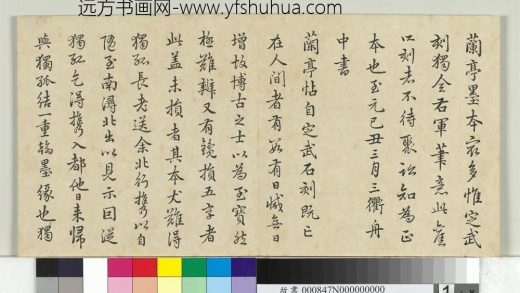 远方书画网-www.yfshuhua.com
蘭亭墨本最多惟定武
刻獨全右軍筆意此舊
所刻者不待聚訟知為正
本也至元己丑三月三衢舟
中書
蘭亭帖自定武石刻既亡
在人間者有數有日減無日
增故博古之士以為至寶然
極難辨又有損五字者
此蓋未損者其本尤難得
獨孤長老送余北行攜以自
隨至南潯北出以見示因從
獨孤乞得攜入都他日來歸
與獨孤結一重翰墨緣也獨
故書 000847N000000000
1